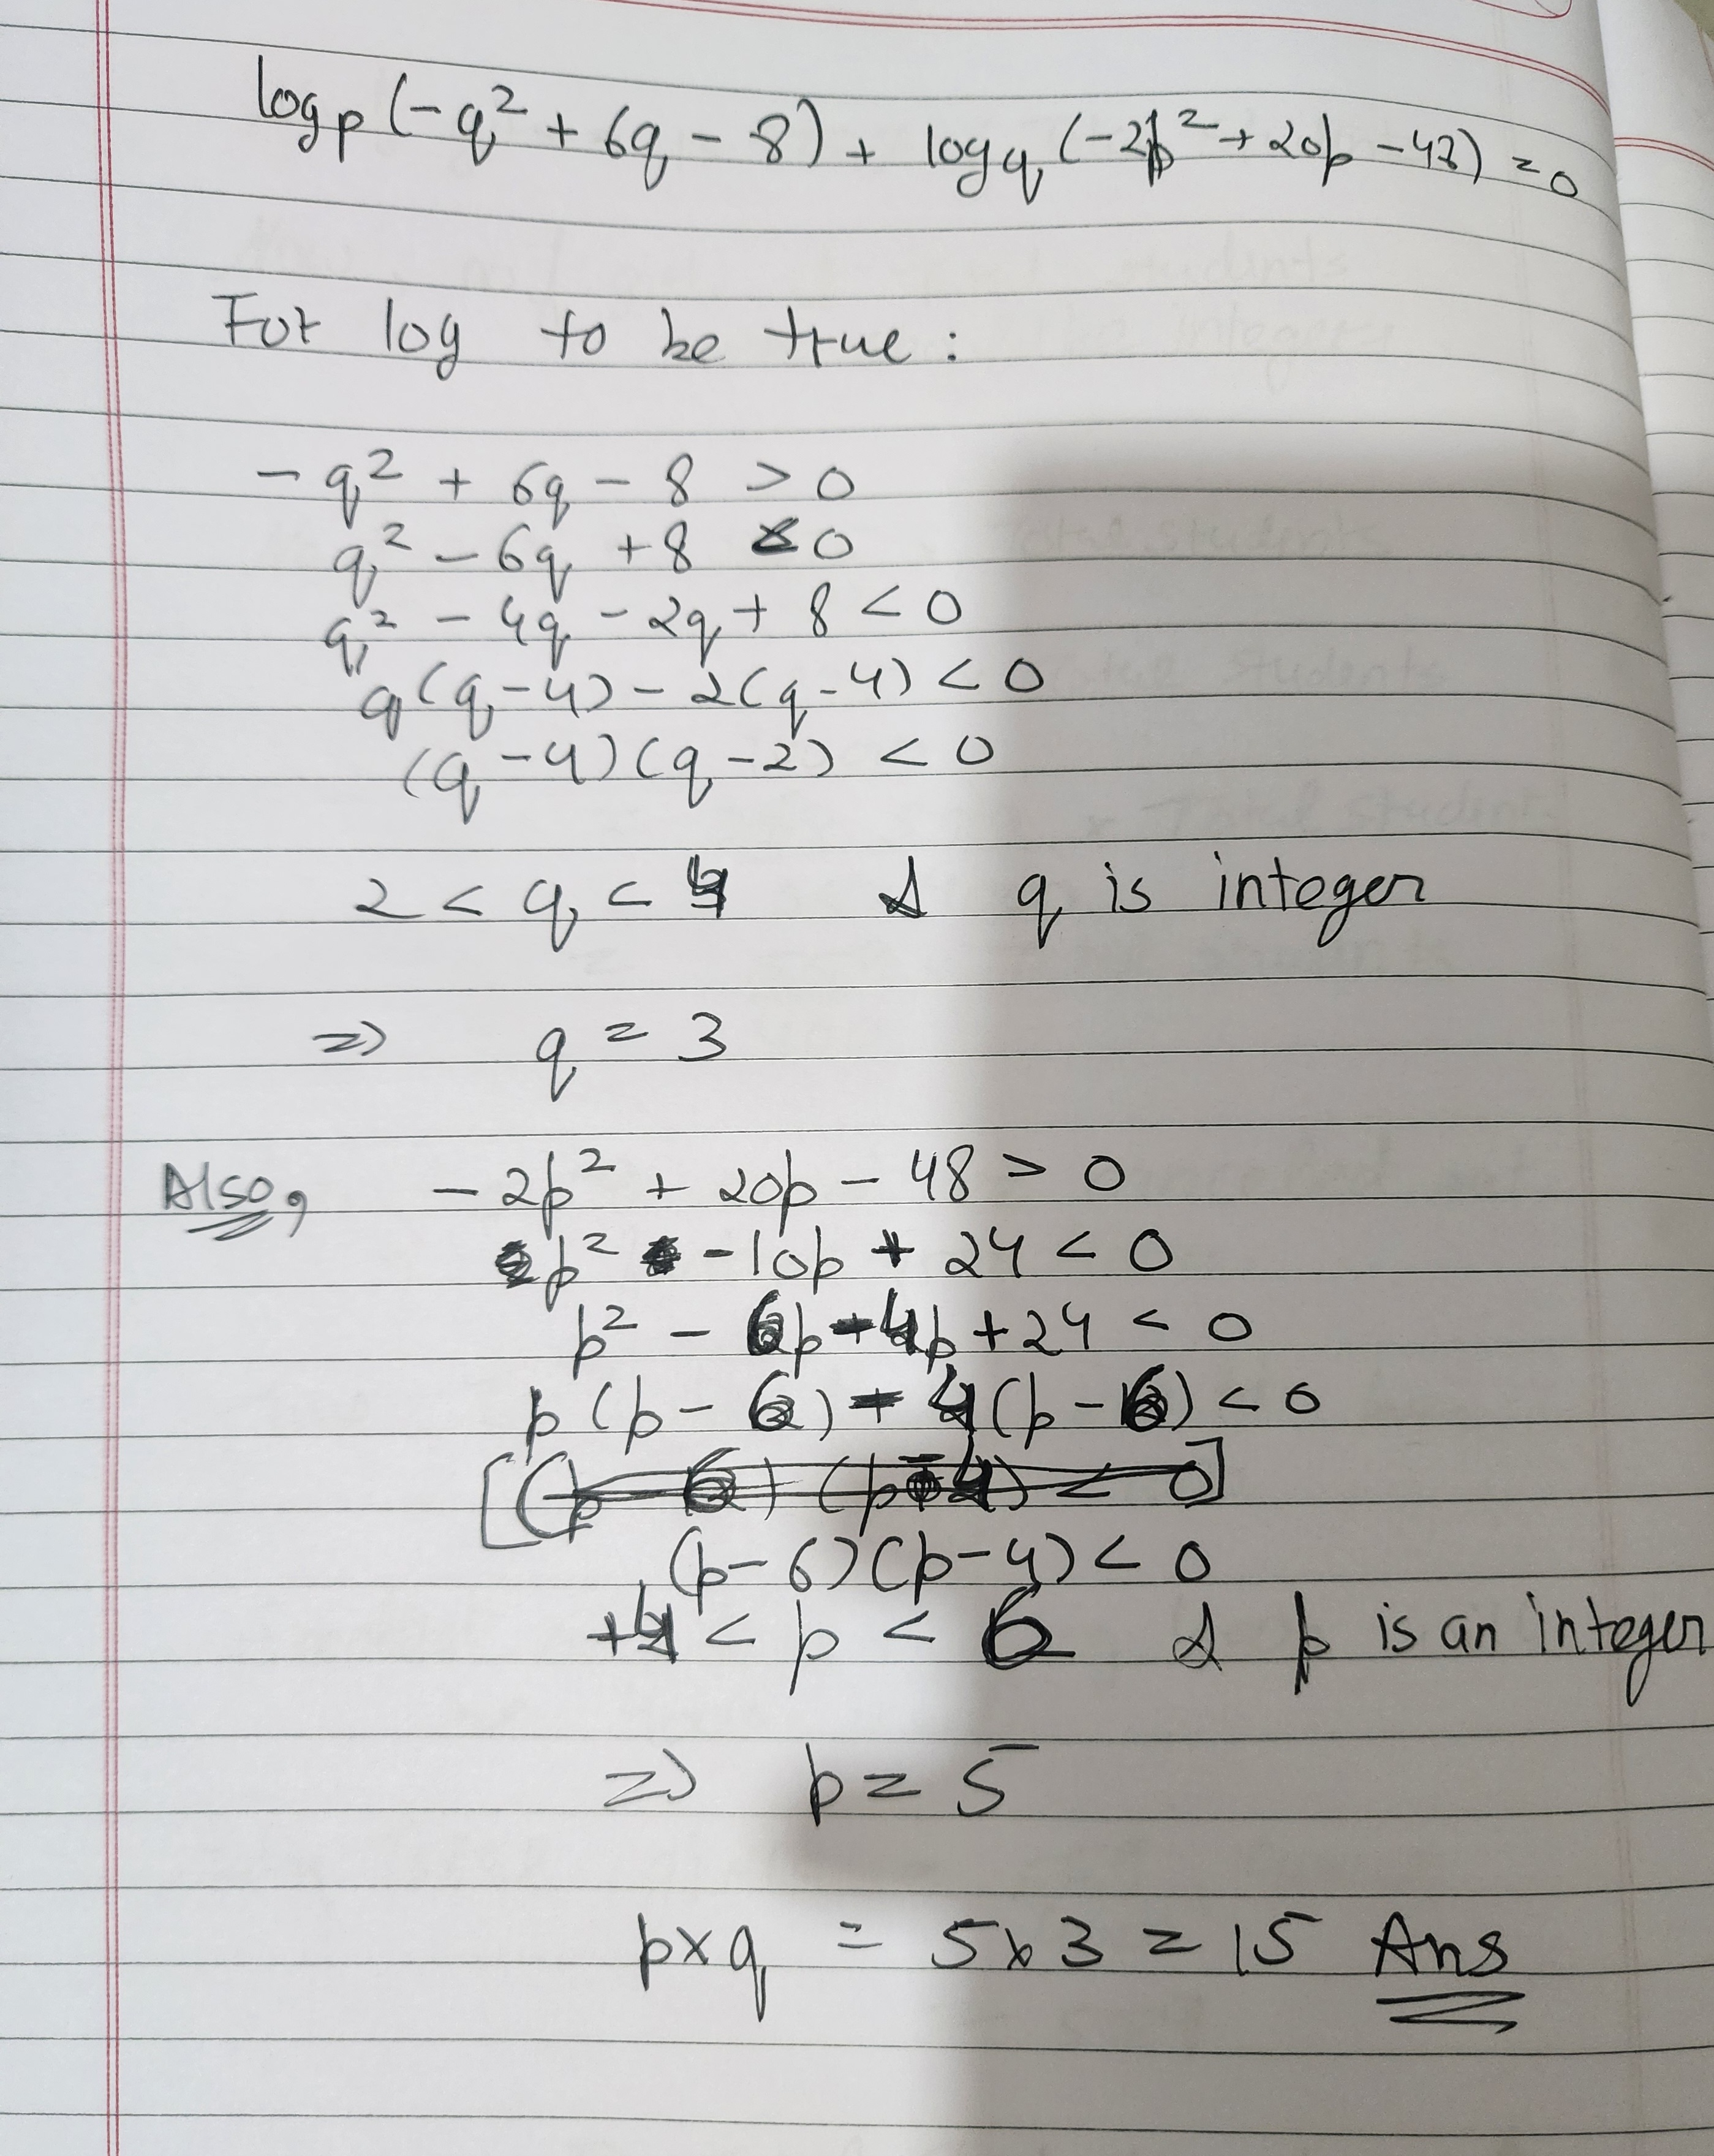 log p (-q² + 6q - 8) + log q (-2p² + 20p - 48) = 0
For log to be true :
-q² + 6q - 8 > 0
q² - 6q + 8 < 0
q² - 4q - 2q + 8 < 0
q(q-4) - 2(q-4) < 0
(q-4)(q-2) < 0
2 < q < 4 & q is integer
=> q = 3
Also, -2p² + 20p - 48 > 0
p² - 10p + 24 < 0
p² - 6p - 4p + 24 < 0
p(p-6) - 4(p-6) < 0
[(p-6)(p-4) < 0]
(p-6)(p-4) < 0
+4 < p < 6 & p is an integer
=> p = 5
p×q = 5×3 = 15 Ans